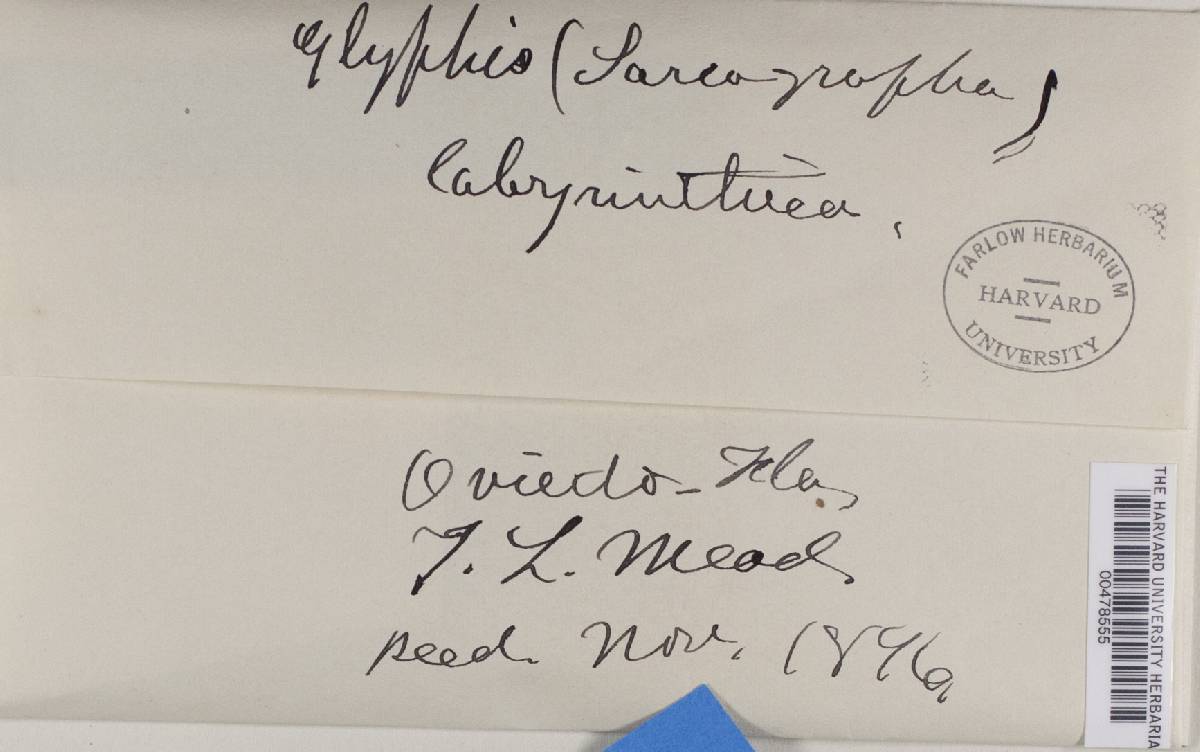 Glyphis (Sarcographa)
labyrinthica.
FARLOW HERBARIUM
HARVARD
UNIVERSITY
Oviedo - Fla,
T. L. Mead,
recd. Nov. 1896
THE HARVARD UNIVERSITY HERBARIA
00478555